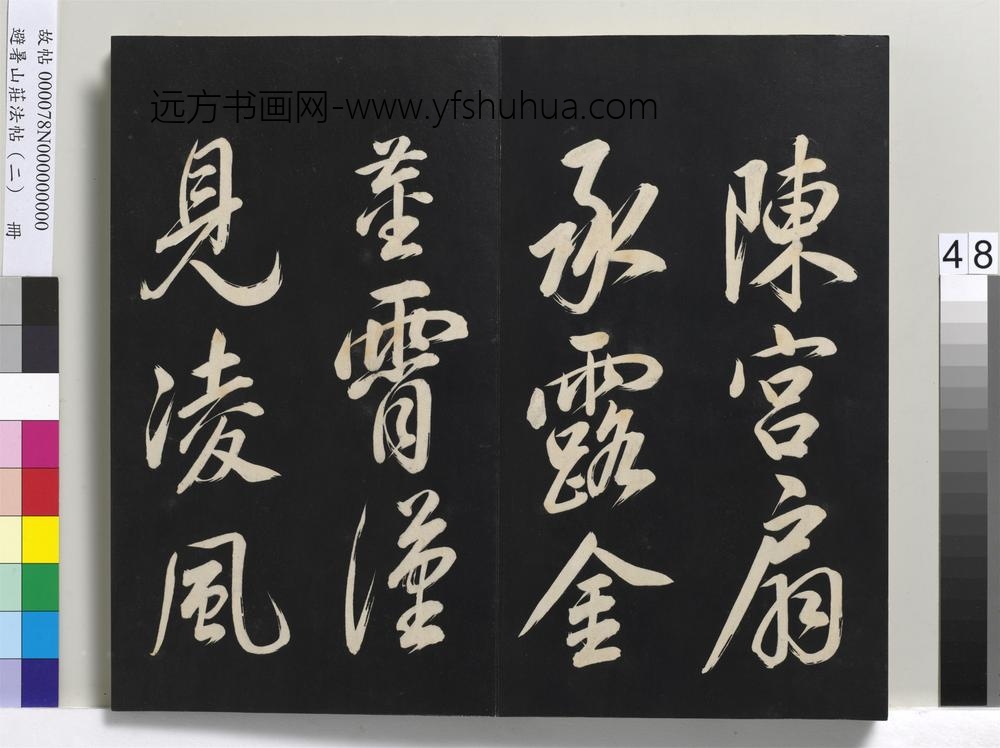 远方书画网-www.yfshuhua.com
陳宮扇
承露金
莖霄漢
見凌風
故帖 000078N000000000
避暑山莊法帖（二） 冊
48